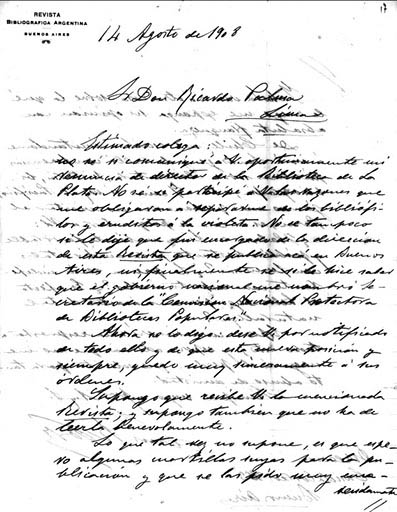 REVISTA
BIBLIOGRAFICA ARGENTINA
BUENOS AIRES
17
14 Agosto de 1908
Sr Don Ricardo Palma
Lima
Estimado colega:
no sé si comuniqué a U. oportunamente mi
renuncia de director de la Biblioteca de La
Plata. No sé si participé a U. las razones que
me obligaron a separarme de los bibliófi-
los y eruditos a la violeta. No sé tampoco
si le dije que fui encargado de la direccion
de esta Revista que se publica acá en Buenos
Aires, ni finalmente se si le hice saber
que el gobierno nacional me nombró Se-
cretario de la "Comision Nacional Protectora
de Bibliotecas Populares".
Ahora no lo dejo: dese U. por notificado
de todo ello y de que esta nueva posicion y
siempre, quedo muy sinceramente a sus
órdenes.
Supongo que recibe U. la mencionada
Revista; y supongo tambien que no ha de
leerla benevolamente.
Lo que tal vez no supone, es que espe-
ro algunas cuartillas suyas para la pu-
blicación y que se las pido muy enca-
recidamente